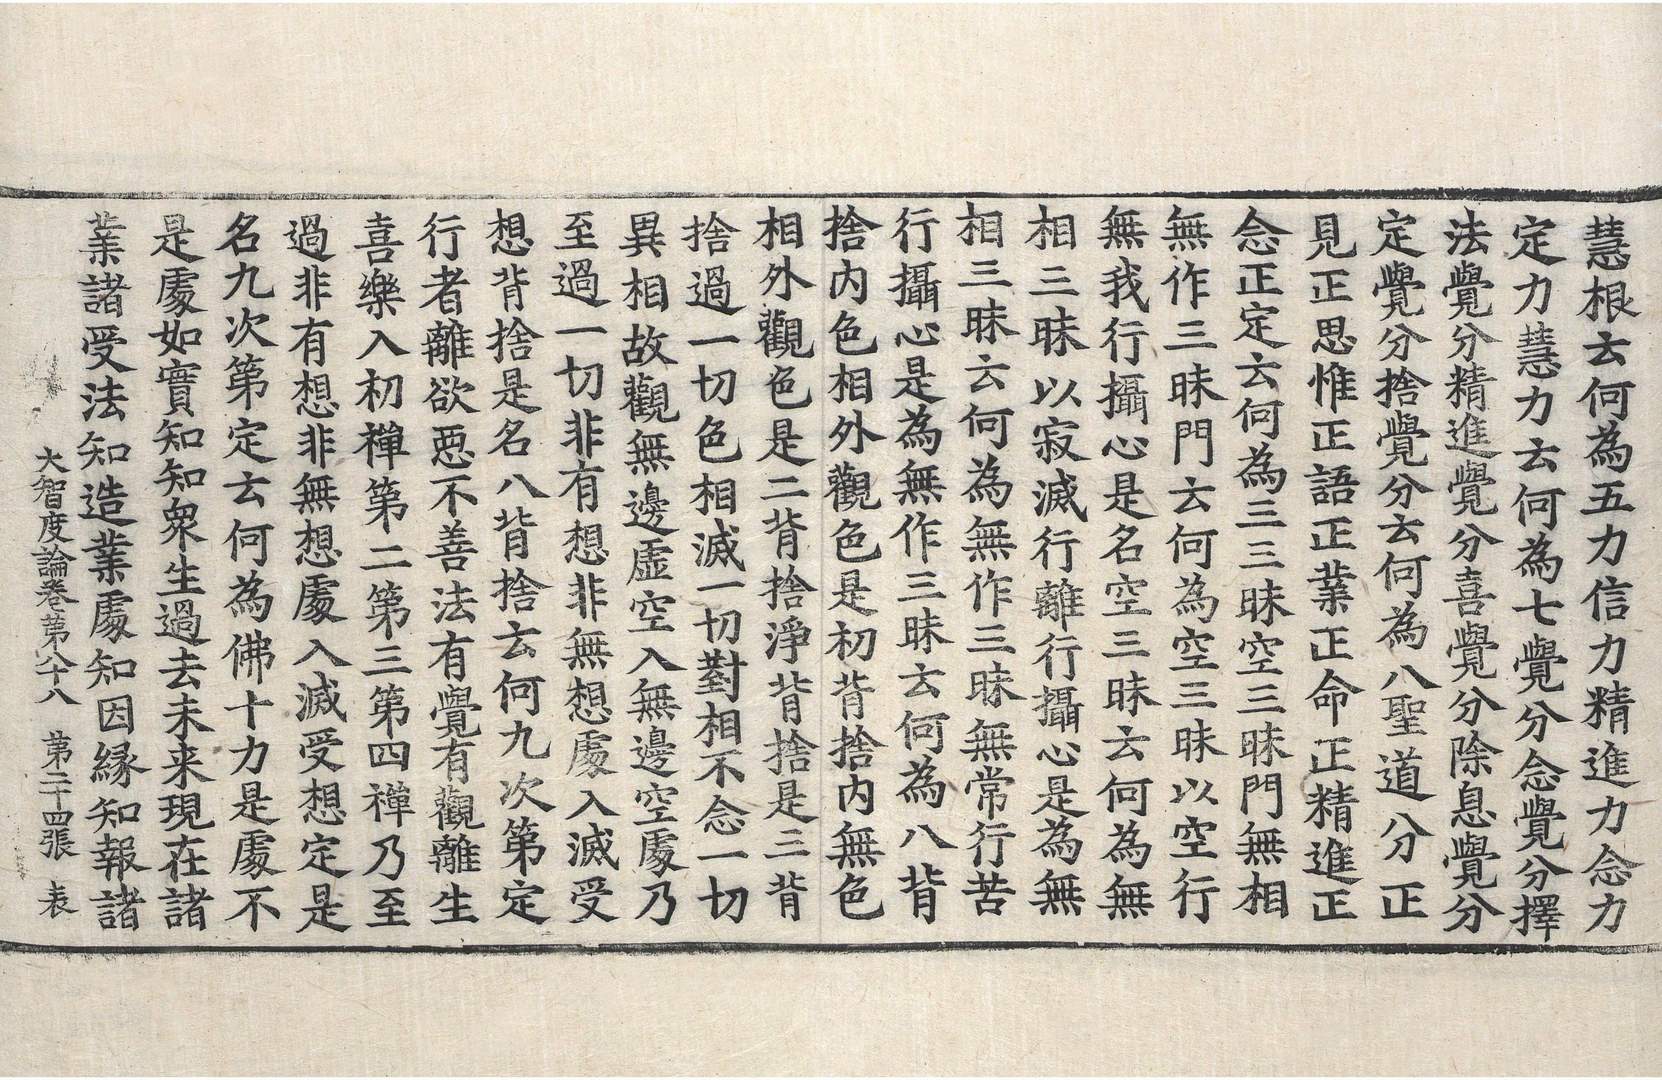 慧根云何為五力信力精進力念力
定力慧力云何為七覺分念覺分擇
法覺分精進覺分喜覺分除息覺分
定覺分捨覺分云何為八聖道分正
見正思惟正語正業正命正精進正
念正定云何為三三昧空三昧門無相
無作三昧門云何為空三昧以空行
無我行攝心是名空三昧云何為無
相三昧以寂滅行離行攝心是為無
相三昧云何為無作三昧無常行苦
行攝心是為無作三昧云何為八背
捨內色相外觀色是初背捨內無色
相外觀色是二背捨淨背捨是三背
捨過一切色相滅一切對相不念一切
異相故觀無邊虛空入無邊空處乃
至過一切非有想非無想處入滅受
想背捨是名八背捨云何九次第定
行者離欲惡不善法有覺有觀離生
喜樂入初禪第二第三第四禪乃至
過非有想非無想處入滅受想定是
名九次第定云何為佛十力是處不
是處如實知知衆生過去未来現在諸
業諸受法知造業處知因緣知報諸
大智度論卷第八十八 第二十四張 表